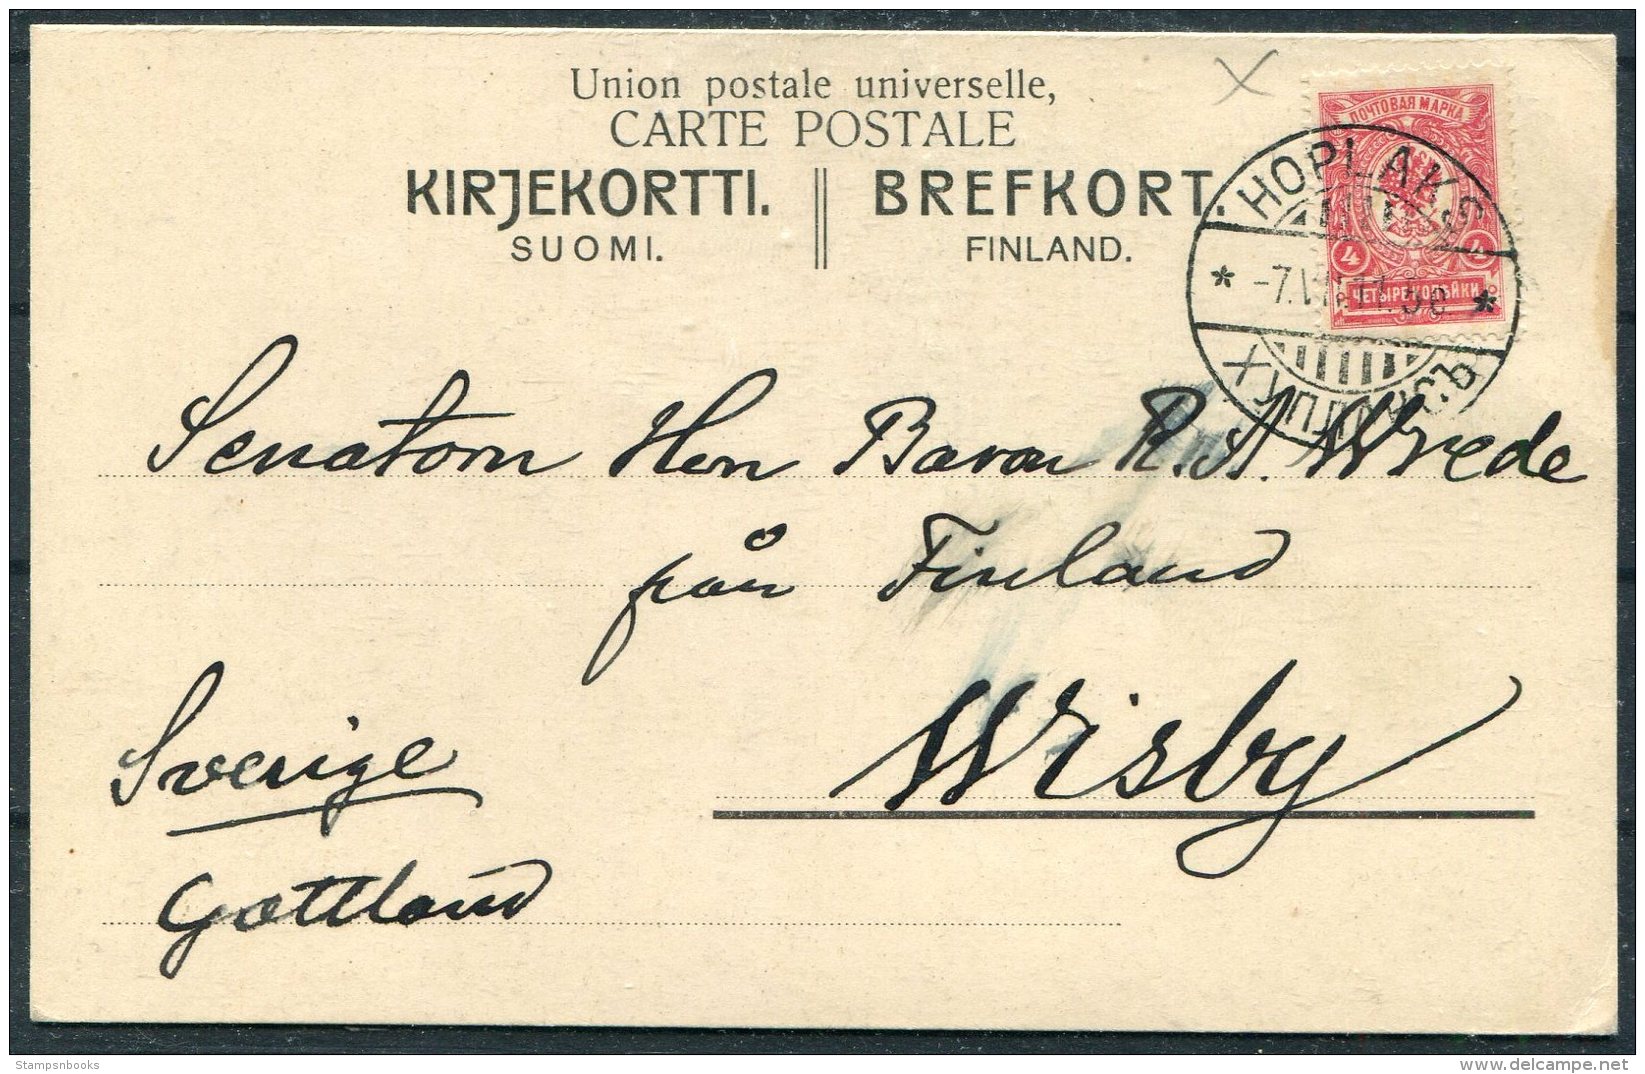 Union postale universelle,
CARTE POSTALE
KIRJEKORTTI. BREFKORT.
SUOMI. FINLAND.
ПОЧТОВАЯ МАРКА
4 4
ЧЕТЫРЕ КОПѢЙКИ
HOPLAKS
Senatorn Herr Baron R. A. Wrede
från Finland
Wisby
Sverige
Gottland
Stampsnbooks
delcampe.net